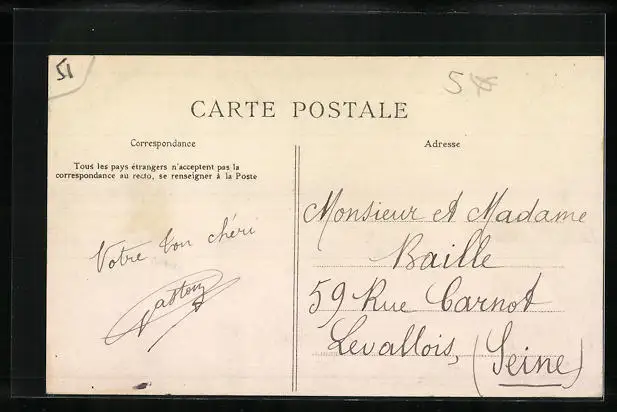 51
CARTE POSTALE
Correspondance
Tous les pays étrangers n'acceptent pas la
correspondance au recto, se renseigner à la Poste
Votre bon chéri
Gaston
Adresse
Monsieur et Madame
Baille
59 Rue Carnot
Levallois, (Seine)